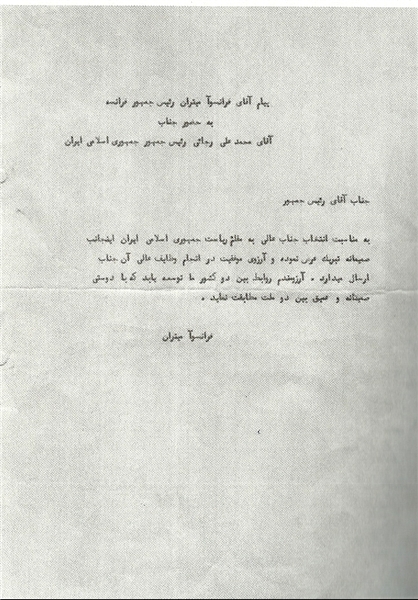 پیام آقای فرانسوآ میتران رئیس جمهور فرانسه
به حضور جناب
آقای محمد علی رجائی رئیس جمهور جمهوری اسلامی ایران
جناب آقای رئیس جمهور
به مناسبت انتخاب جناب عالی به مقام ریاست جمهوری اسلامی ایران اینجانب
صمیمانه تبریك عرض نموده و آرزوی موفقیت در انجام وظایف عالی آن جناب
ارسال میدارد . آرزومندم روابط بین دو کشور ما توسعه یابد که با دوستی
صمیمانه و عمیق بین دو ملت مطابقت نماید .
فرانسوآ میتران